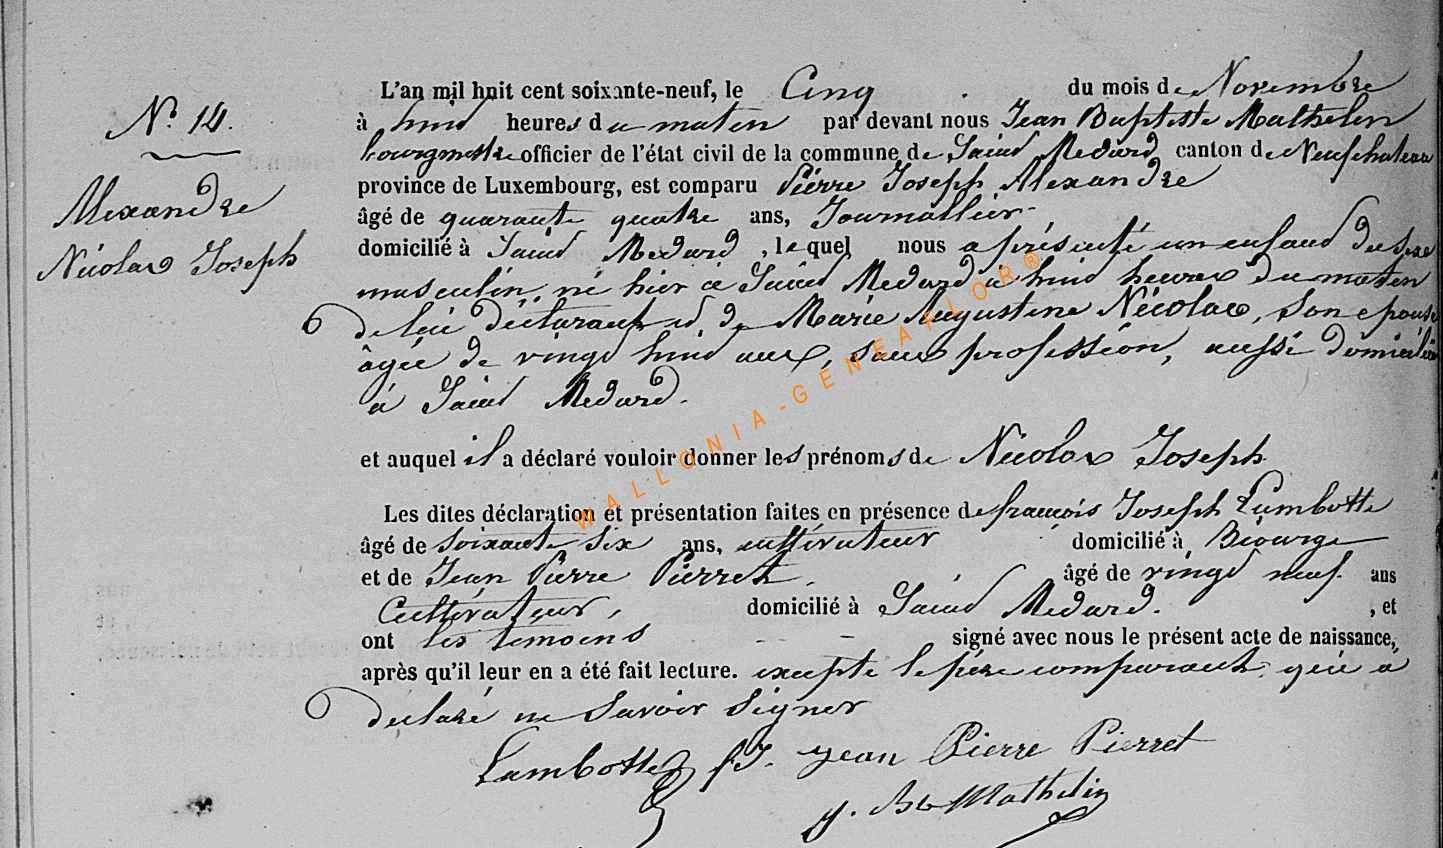 N° 14.
Alexandre
Nicolas Joseph
L'an mil huit cent soixante-neuf, le Cinq du mois de Novembre
à huit heures du matin par devant nous Jean Baptiste Mathelin
bourgmestre officier de l'état civil de la commune de Saint Médard canton de Neufchateau
province de Luxembourg, est comparu Pierre Joseph Alexandre
âgé de quarante quatre ans, Journallier
domicilié à Saint Médard, lequel nous a présenté un enfant du sexe
masculin, né hier à Saint Médard à huit heures du matin
de lui déclarant et de Marie Augustine Nicolas, son épouse
âgée de vingt huit ans, sans profession, aussi domiciliée
à Saint Médard.
et auquel il a déclaré vouloir donner les prénoms de Nicolas Joseph
Les dites déclaration et présentation faites en présence de françois Joseph Lambotte
âgé de soixante six ans, cultivateur domicilié à Biourge
et de Jean Pierre Pierret. âgé de vingt neuf ans
Cultivateur, domicilié à Saint Médard. , et
ont les témoins signé avec nous le présent acte de naissance,
après qu'il leur en a été fait lecture. excepté le père comparant qui a
déclaré ne savoir signer
Lambotte fJ. Jean Pierre Pierret
J. Bte Mathelin
WALLONIA-GENEAFLOR®